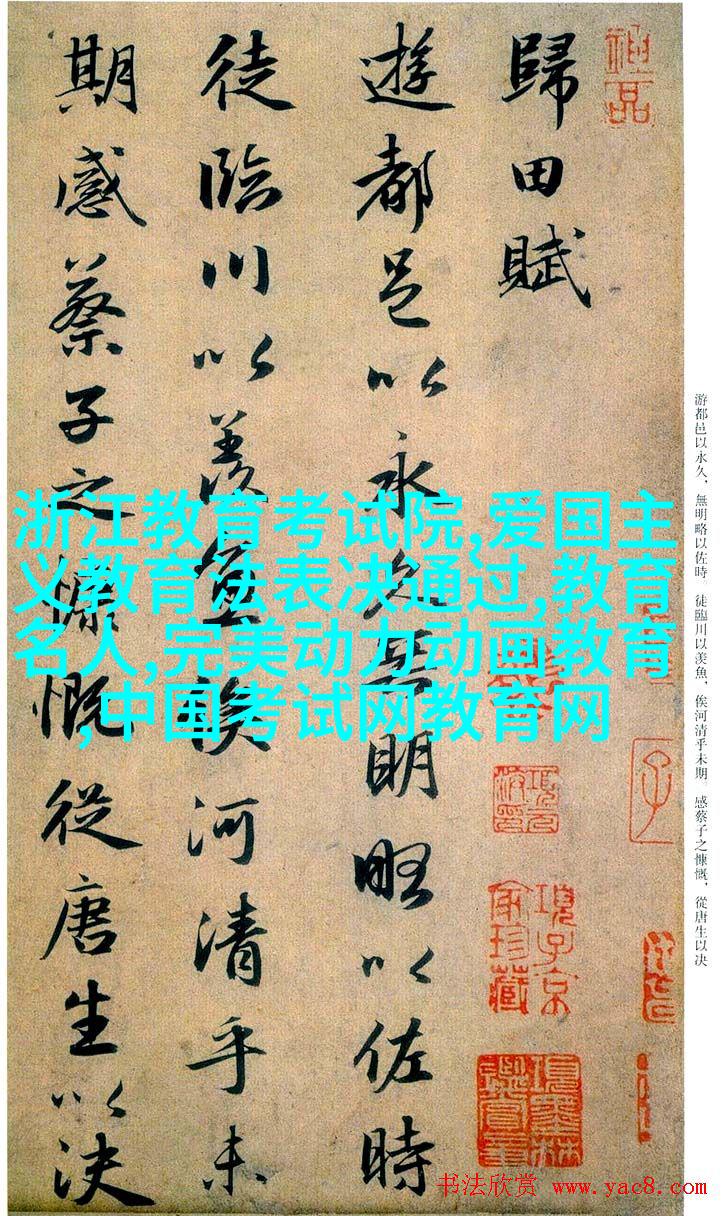 歸田賦
遊都邑以永久無明略以佐時
徒臨川以羨魚俟河清乎未
期感蔡子之慷慨從唐生以決
浙江教育考试院,爱国主
义教育法表决通过,教育
名人,完美动力动画教育
,中国考试网教育网
游都邑以永久，無明略以佐時。徒臨川以羨魚，俟河清乎未期。感蔡子之慷慨，從唐生以决
项子京
家珍藏
书法欣赏 www.yac8.com